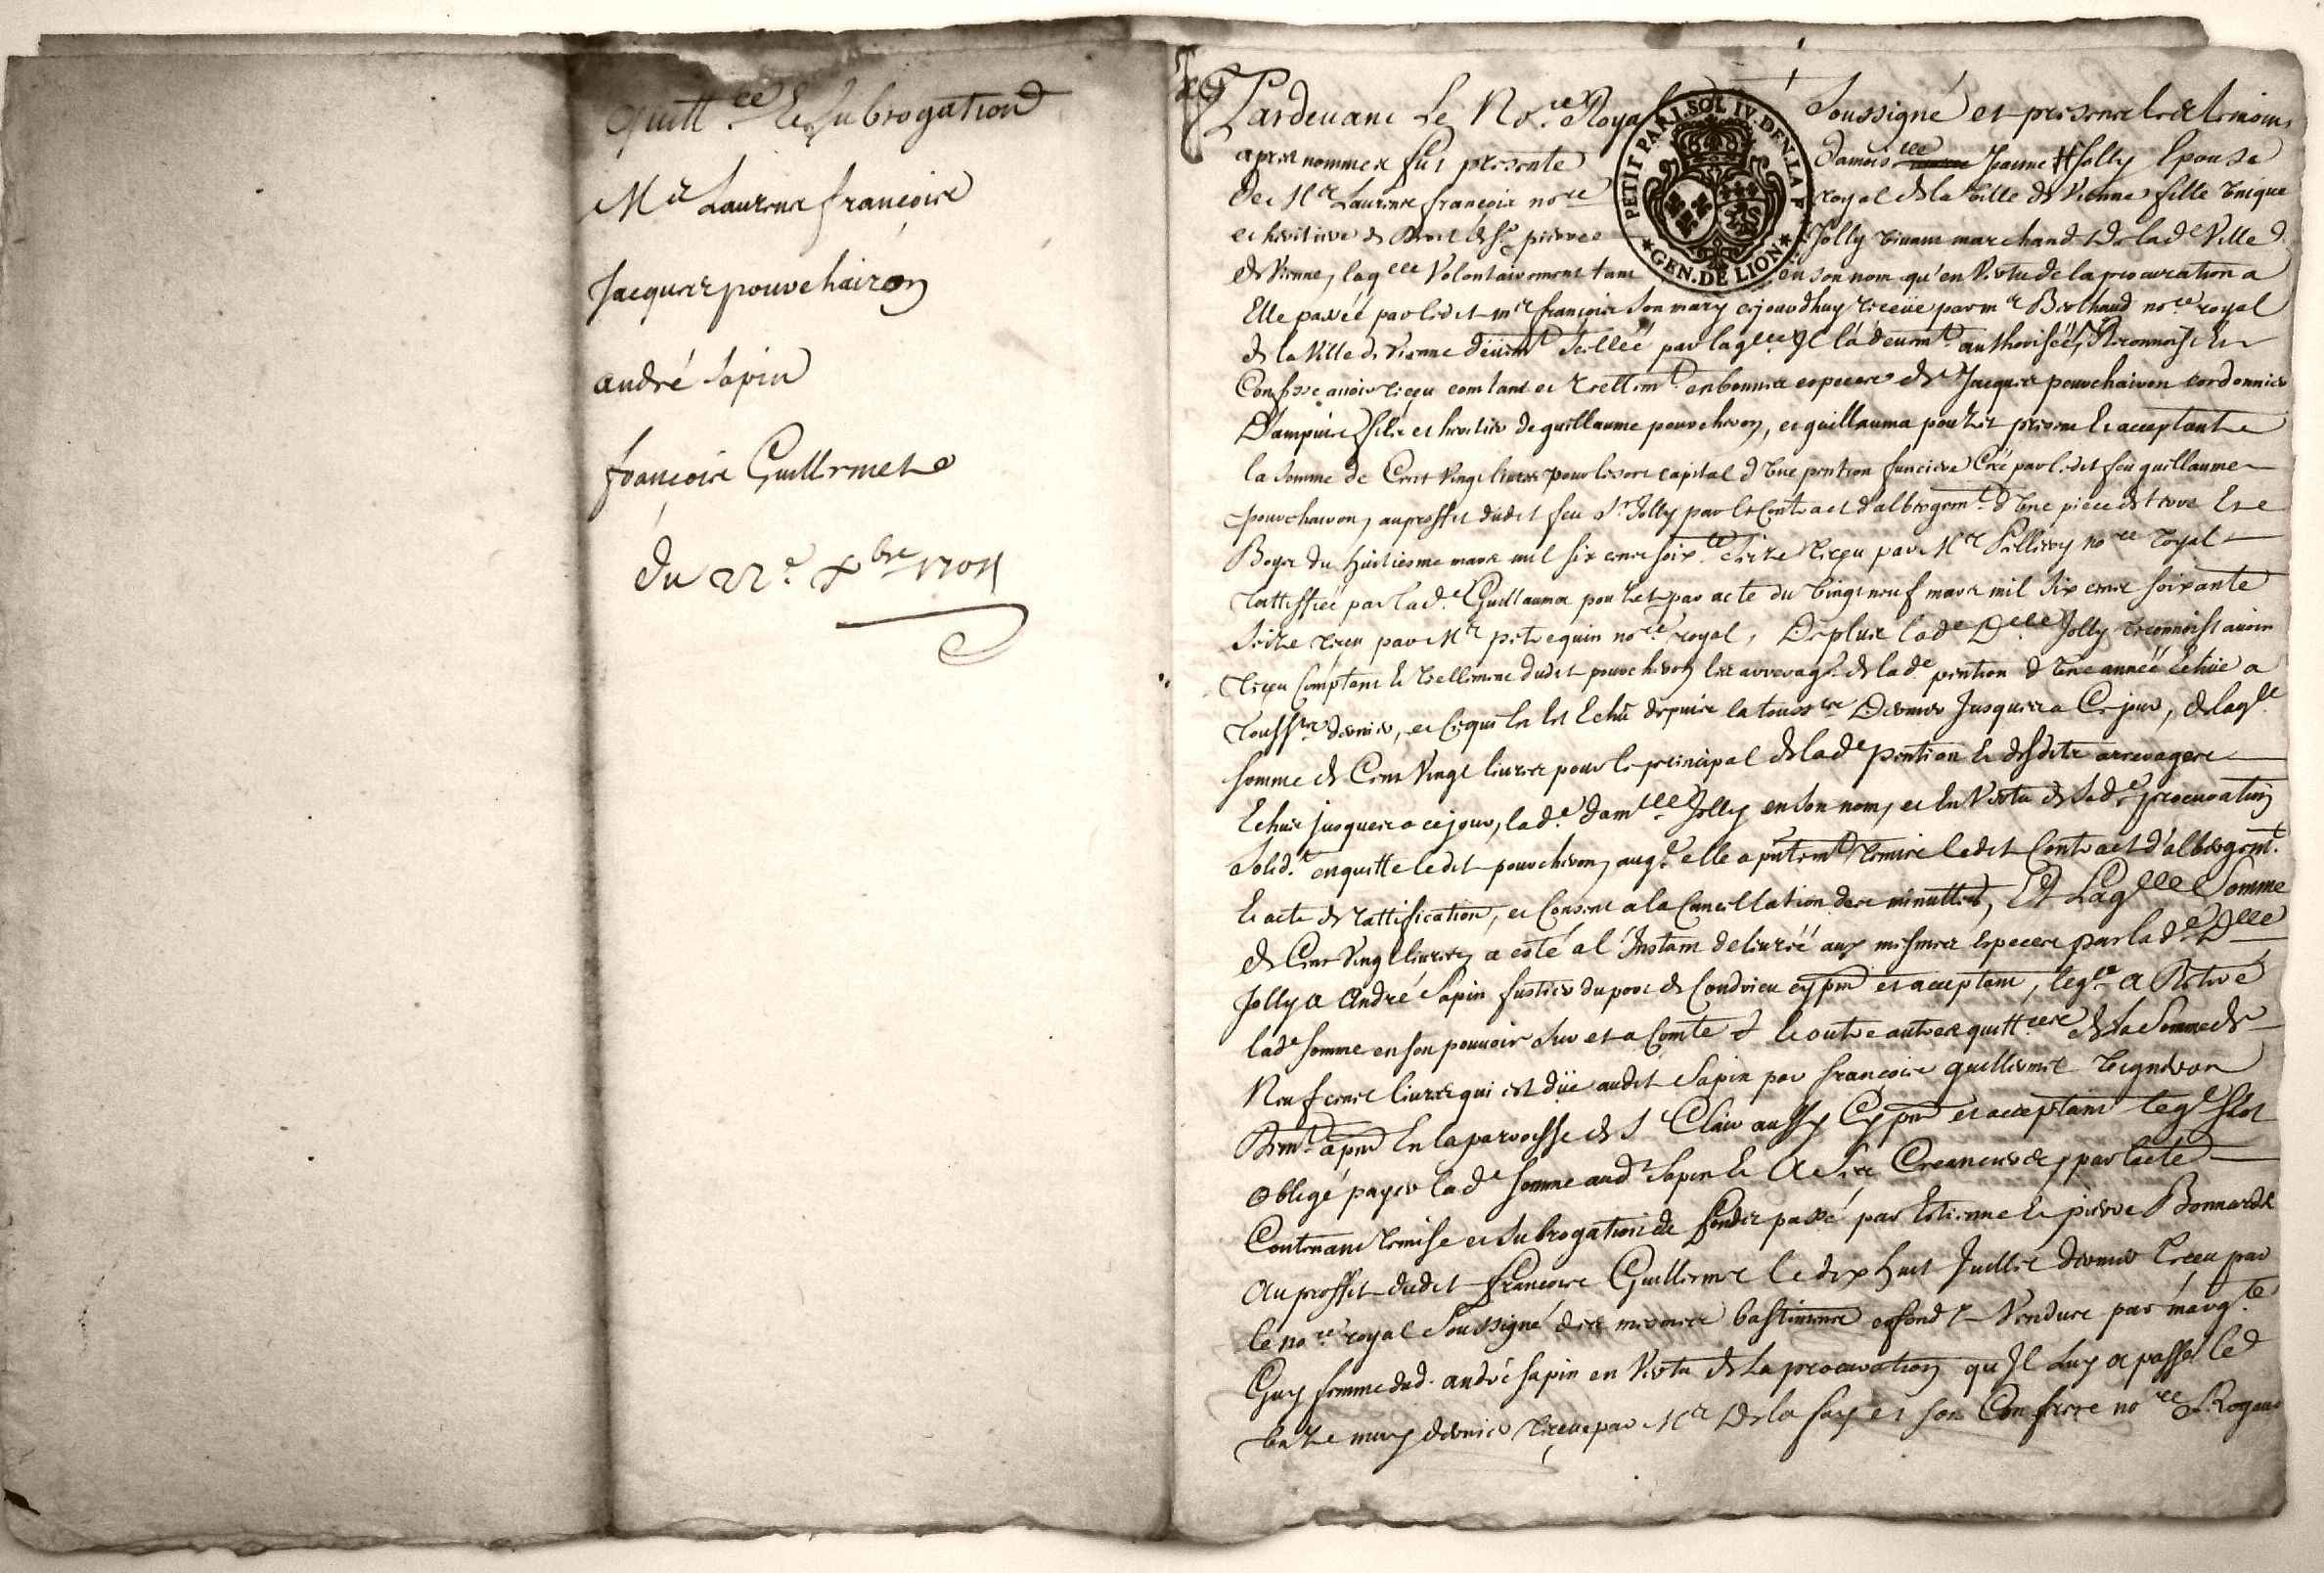 Quitt.ce Et Subrogation
Mr Laurens françois
Jacques pouchairon
andré Sapin
françois Guillermet
du 22e Xbre 1701
PETIT PAP. I. SOL IV. DEN. LA F.
GEN. DE LION
Pardevant Le No.re Royal Soussigné et presents les temoins
apres nommes fut presente Damois.lle Jeanne Jolly Epouse
de Mr Laurens françois no.re royal de la Ville de Vienne fille Unique
et heritiere de Sr pierre Jolly Vivant marchand de lade Ville
de Vienne, laq.lle Volontairement tant en son nom qu'en Vertu de la procuration a
Elle passée par ledit mr françois Son mary cejourdhuy receüe par mr Berthaud no.re royal
de la Ville de Vienne düemt Scellée par laq.lle Il la deuemt authorisée, Reconnoist Et
Confesse avoir reçu comtant et reellemt en bonnes especes de Jacques pouchairon cordonnier
D'ampuis fils et heritier de guillaume pouchiron, et guillauma pouzet present Et acceptant
la Somme de Cent Vingt livres pour le sort capital d'Une pention fonciere Créé par ledit feu guillaume
pouchairon, au proffit dudit feu Sr Jolly par le Contract d'albergemt d'Une piece de terre Et
du huitiesme mars mil six cents soix.te Seize reçu par Mr no.re royal
rattiffiée par lade Guillauma pouzet par acte du Vingt neuf mars mil Six cents Soixante
Seize reçu par Mr petrequin no.re royal, De plus lade Dlle Jolly reconnoist avoir
reçu Comptant Et reellement dudit pouchiron les arrerages de lade pention d'Une année Echüe a
Touss.ts dernier, et ce qui En Est Echu depuis la touss.ts Dernier Jusques a Ce jour, de laq.lle
somme de Cent Vingt livres pour le principal de lade pention Et desdits arrerages
Echus jusques a ce jour, lade dam.lle Jolly en Son nom, et En Vertu de sade procuration
Solid.e en quitte ledit pouchiron, auq.l elle a pntemt remise ledit Contract d'albergemt
Et acte de rattification, et Consent a la Cancellation des minuttes, Et Laq.lle Somme
de Cent Vingt livres, a esté al' Instant delivréé aux mesmes Especes par lade Dlle
Jolly a André Sapin fustier du port de Condrieu cy pnt et acceptant, leq.l a Retiré
lade Somme en son pouvoir Sur et a Comte Et outre autres quitt.ces de la Somme de
Neuf cents livres qui est düe audit Sapin par françois guillermet Vigneron
a pnt En la parroisse de St Clair aussy Cy pnt et acceptant leq.l Sest
obligé payer lade Somme aud Sapin Et A Ses Creanciers, par lacte
Contenant remise et Subrogation de fonds passé par Estienne Et pierre Bonnard
Au proffit dudit françois Guillermet le dix huit Juillet dernier Receu par
le no.re royal Soussigné des mesmes bastiments et fond Vendus par marg.te
Guy femme dud. andré Sapin en Vertu de la procuration qu'Il Luy a passé le
may dernier receue par Mr Dela fay et son Confrere no.re